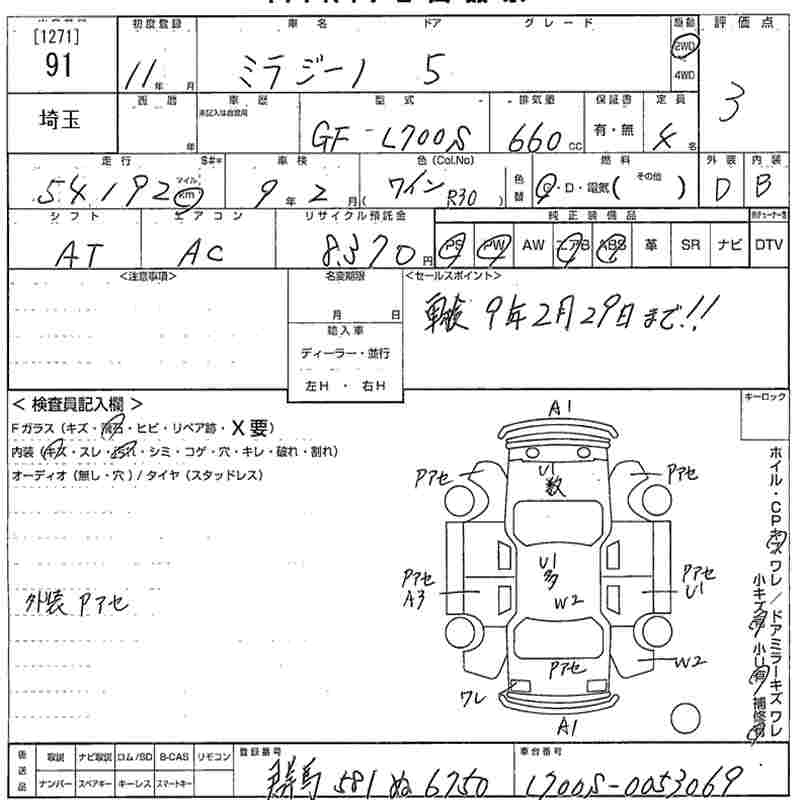 [1271]
91
埼玉
初度登録
11年 月
車名
ミラジーノ
ドア
5
グレード
駆動
2WD
4WD
評価点
3
西暦
年
車歴
未記入は自家用
型式
GF-L700S
排気量
660cc
保証書
有・無
定員
4名
走行
$#*
54192
マイル
km
車検
9年2月
色(Col.No)
(ワイン R30)
色替
燃料
G・D・電気(その他)
外装
D
内装
B
シフト
AT
エアコン
AC
リサイクル預託金
8,370円
純正装備品
PS PW AW エアB ABS 革 SR ナビ
DTV
<注意事項>
名変期限
月 日
輸入車
ディーラー・並行
左H ・ 右H
<セールスポイント>
車検 9年2月29日まで!!
< 検査員記入欄 >
Fガラス(キズ・飛石・ヒビ・リペア跡・X要)
内装(キズ・スレ・汚れ・シミ・コゲ・穴・キレ・破れ・割れ)
オーディオ(無し・穴)/タイヤ(スタッドレス)
外装 Pアセ
キーロック
A1
Pアセ
U1
数
Pアセ
Pアセ
A3
U1
多
W2
Pアセ
U1
Pアセ
W2
ワレ
A1
ホイル・CPキズ ワレ/ドアミラーキズ ワレ
小キズ有 小U有 補修有
後送品
取説 ナビ取説 ロム/SD B-CAS リモコン
ナンバー スペアキー キーレス スマートキー
登録番号
群馬 581 ぬ 6750
車台番号
L700S-0053069